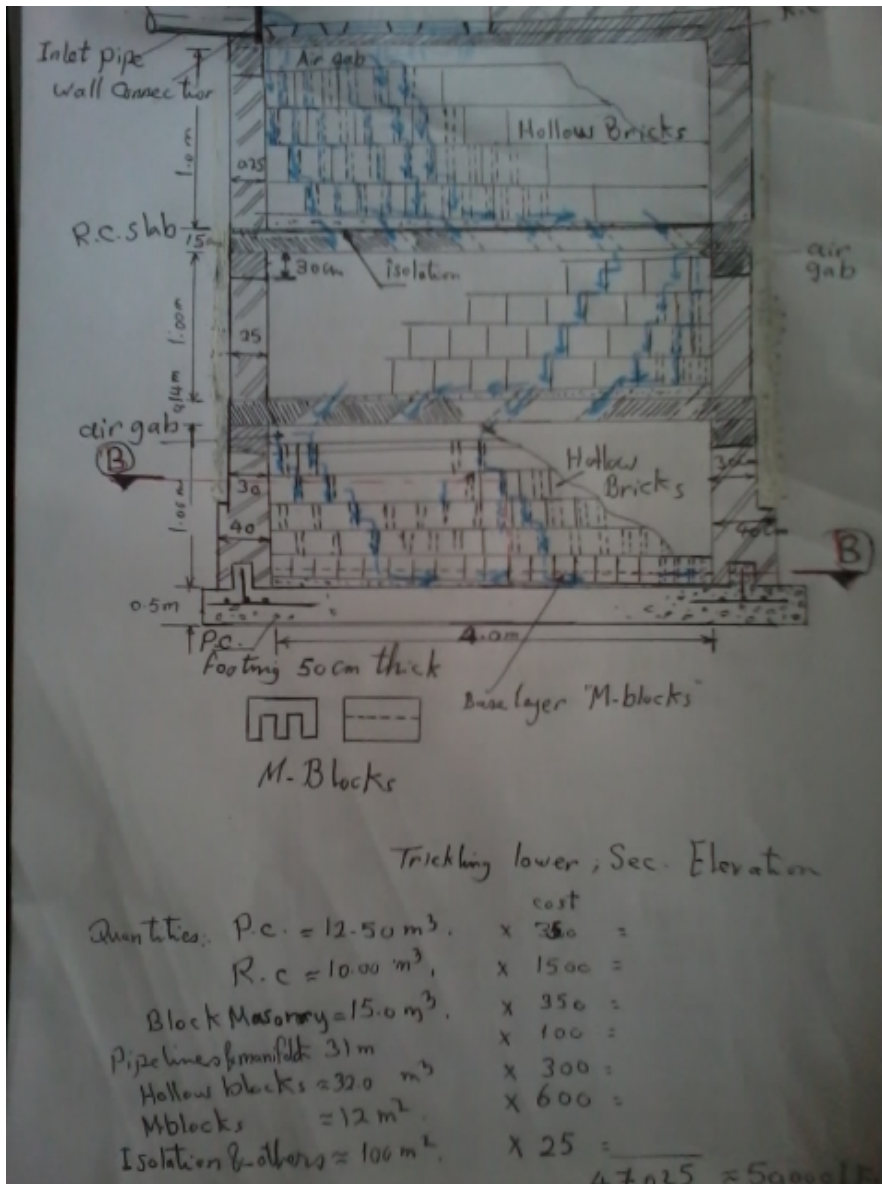 Inlet pipe
Wall Connection
Air gab
Hollow Bricks
1.0 m
025
R.C. slab
15
30cm
isolation
air
gab
1.00m
25
air gab
B
Hollow
Bricks
30
1.05m
40
B
0.5m
P.C.
4.0m
Footing 50cm thick
Base layer "M-blocks"
M-Blocks
Trickling lower, Sec. Elevation
cost
Quantities: P.C. = 12.50 m³. x 350 =
R.C = 10.00 m³, x 1500 =
Block Masonry = 15.0 m³. x 350 =
Pipelines & manifold: 31m x 100 =
Hollow blocks = 32.0 m³ x 300 =
Mblocks = 12 m². x 600 =
Isolation & others = 100 m². x 25 =
47025 = 50000